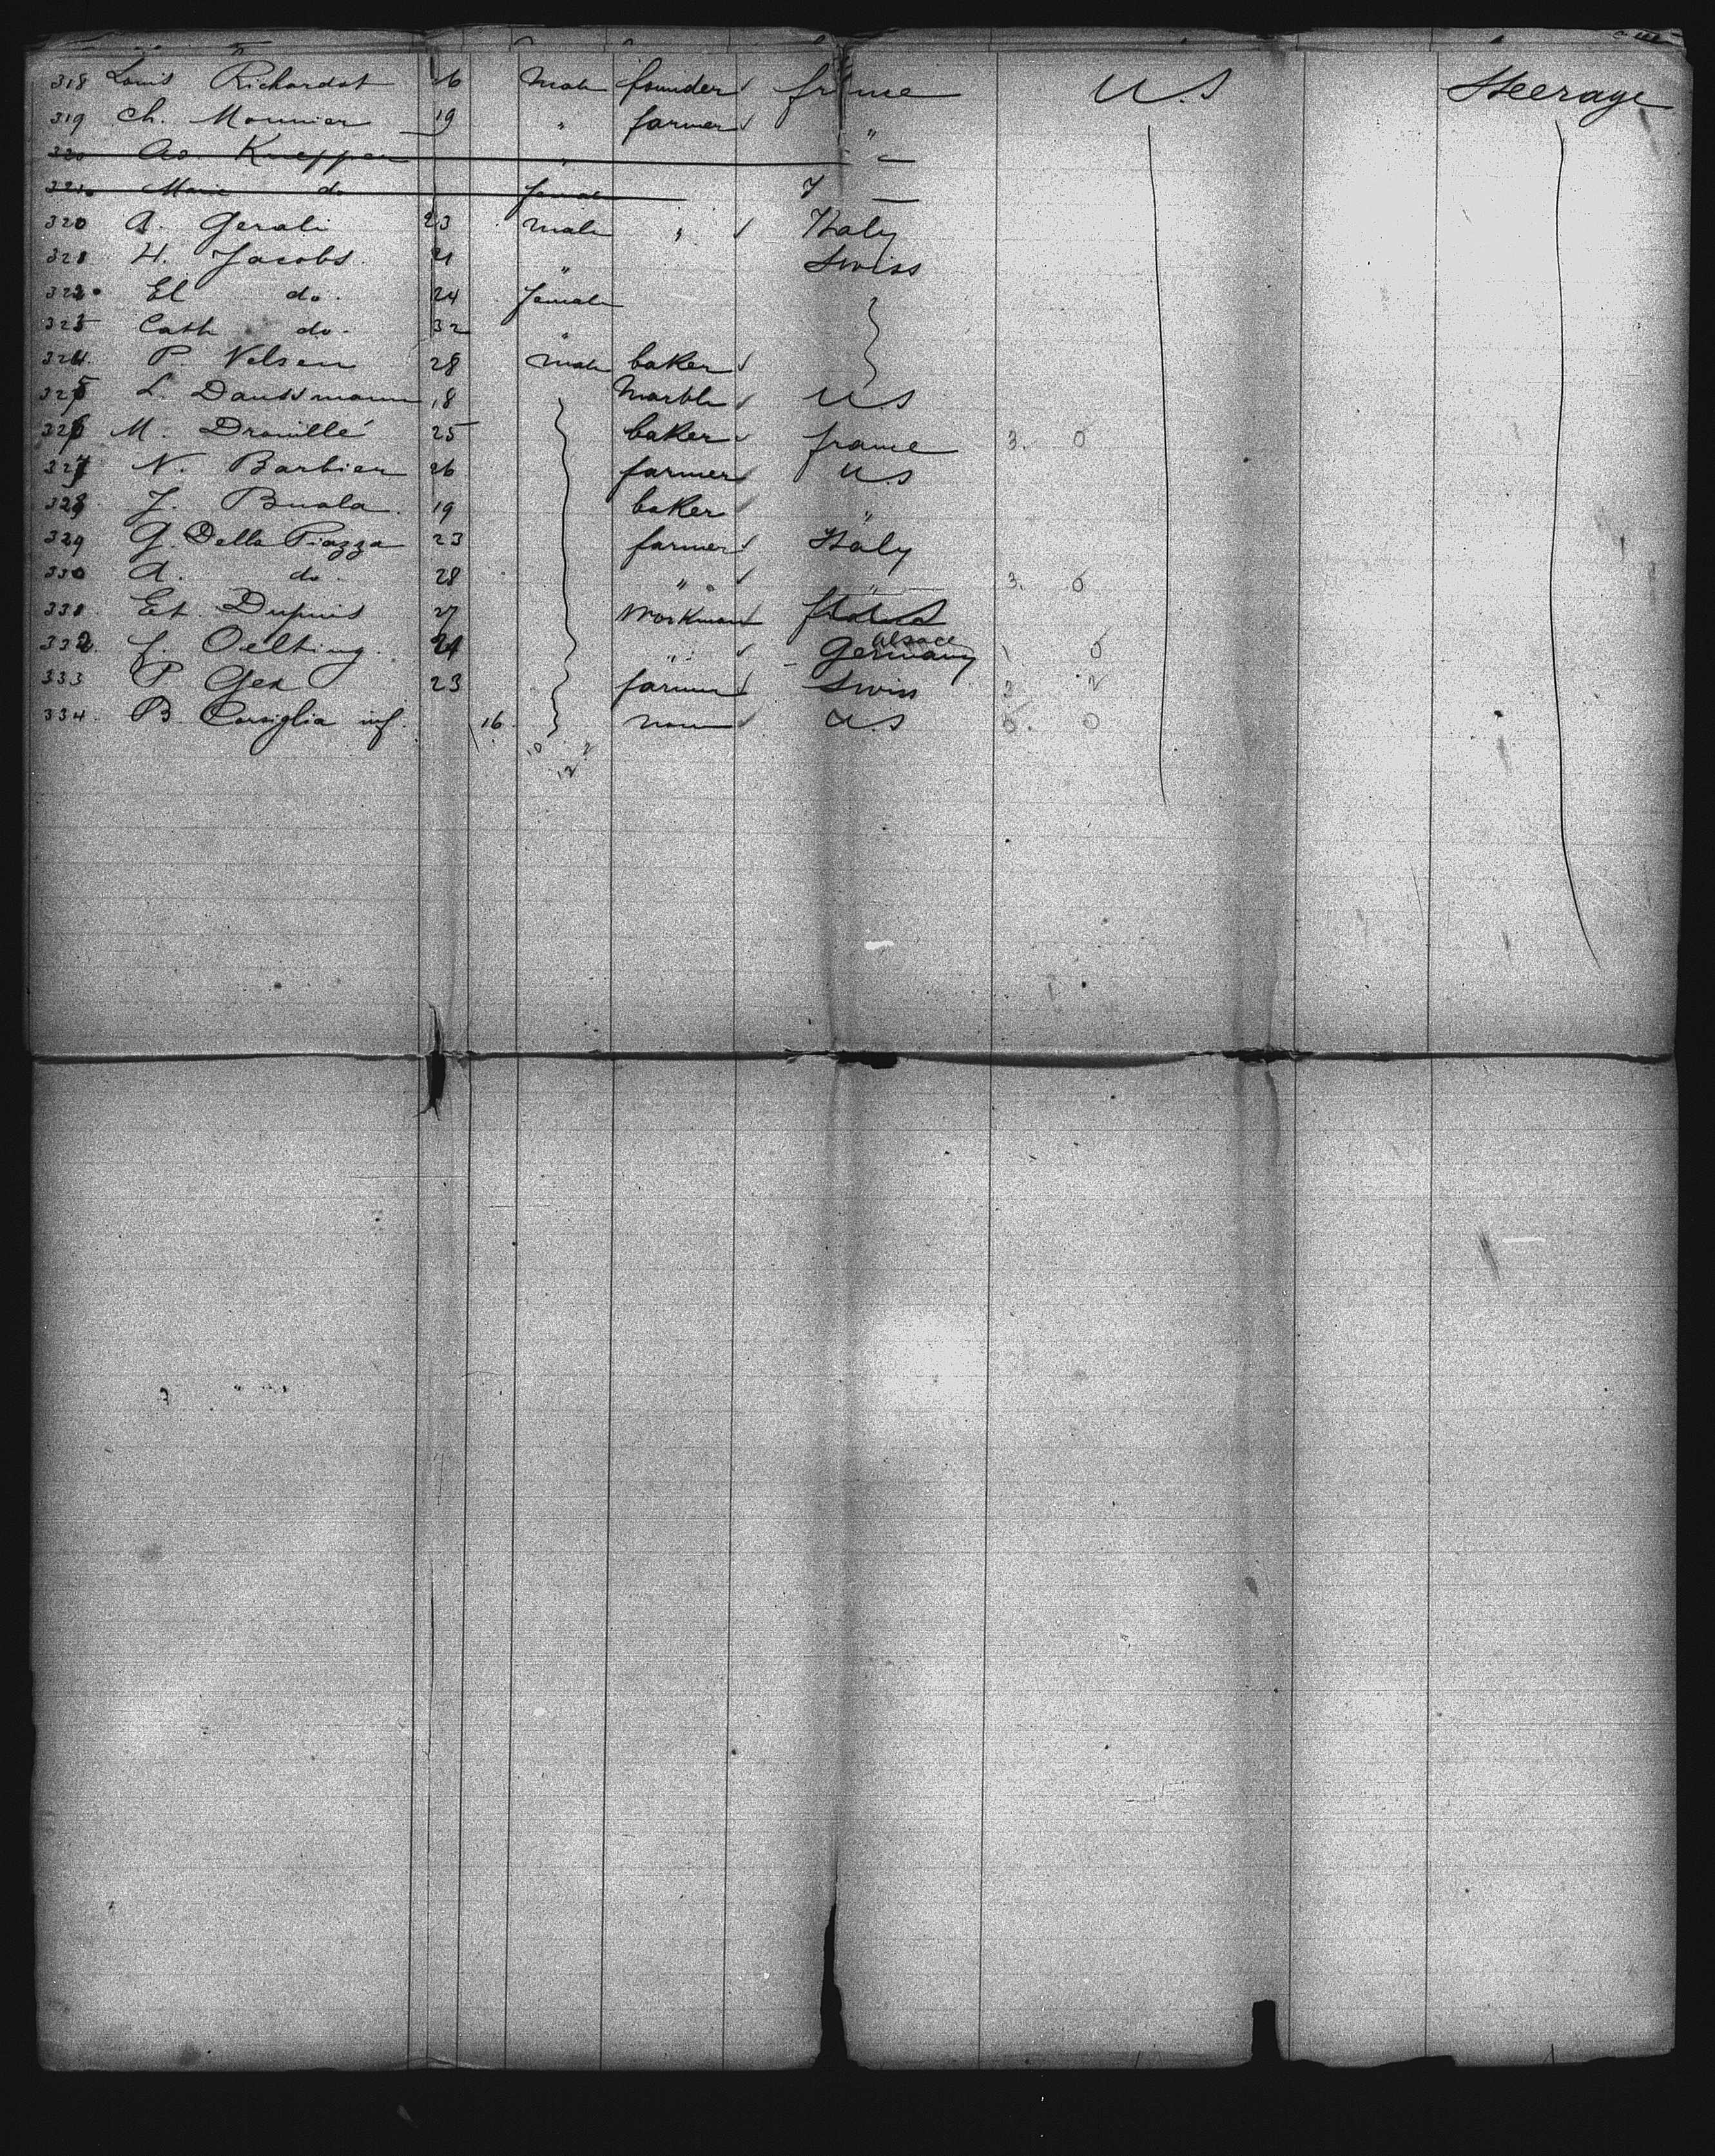 318 Louis Richardot 26 male founder france U.S Steerage
319 Ch. Mounier 19 " farmer "
320 Ad. Kneppen "
321 Marie do female
320 A. Gerali 23 male " Italy
321 H. Jacobs. 21 " Swiss
322 El do. 24 female
323 Cath do. 32 "
324. P. Nelsen 28 male baker
325 L. Dantsmann 18 Marble U.S
326 M. Drouillé 25 baker france 3. 0
327 N. Barbier 26 farmer U.S
328 J. Buala. 19 baker "
329 G. Della Piazza 23 farmer Italy
330 A. do. 28 " " 3. 0
331. Et. Dupuis 27 workman U.S
332. Oelting. 24 " Germany Alsace 1. 0
333 P Gex 23 farmer Swiss 2
334. B. Corsiglia inf. 16 none U.S 0
10 2
12